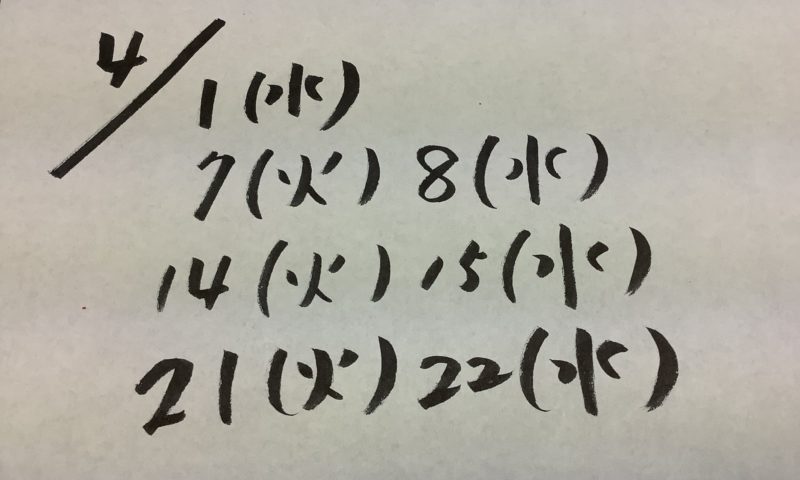 4/1(水)
7(火) 8(水)
14(火) 15(水)
21(火) 22(水)